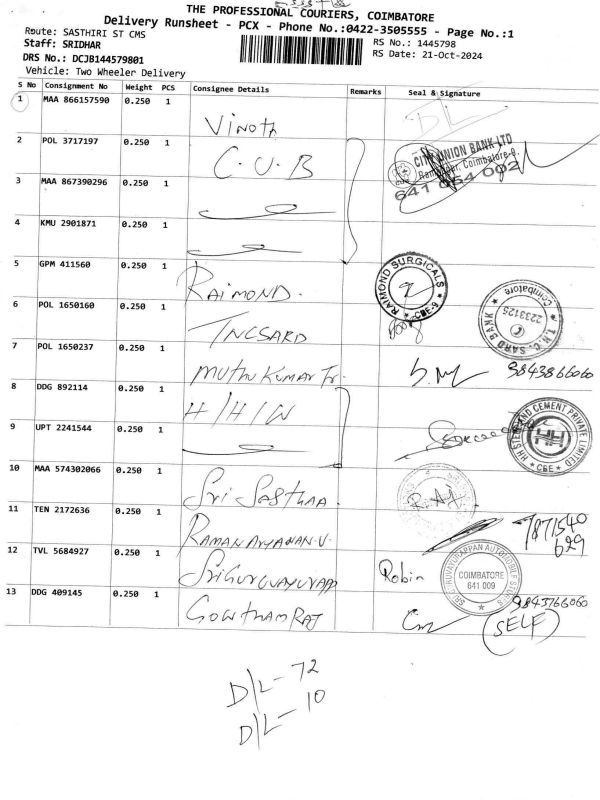 THE PROFESSIONAL COURIERS, COIMBATORE
Delivery Runsheet - PCX - Phone No.:0422-3505555 - Page No.:1
Route: SASTHIRI ST CMS
RS No.: 1445798
Staff: SRIDHAR
RS Date: 21-Oct-2024
DRS No.: DCJB144579801
Vehicle: Two Wheeler Delivery
S No Consignment No Weight PCS Consignee Details Remarks Seal & Signature
1 MAA 866157590 0.250 1 Vinoth DL
2 POL 3717197 0.250 1 C.U.B
CITY UNION BANK LTD
Ram Nagar, Coimbatore-9.
641 054 002
3 MAA 867390296 0.250 1
4 KMU 2901871 0.250 1
5 GPM 411560 0.250 1 RAIMOND.
RAIMOND SURGICALS
CBE-9
6 POL 1650160 0.250 1 TNCSARD
T.N.C. SARD BANK
2233125
Coimbatore
7 POL 1650237 0.250 1 Muthu Kumar Tr. 9843866060
8 DDG 892114 0.250 1 H/H/W
HH STEEL AND CEMENT PRIVATE LIMITED
HH
CBE
9 UPT 2241544 0.250 1
10 MAA 574302066 0.250 1 Sri Sasthaa.
11 TEN 2172636 0.250 1 RAMAN ARYANAN.V. 7871540
629
12 TVL 5684927 0.250 1 Sri Guruvayurapp Robin
COIMBATORE
641 009
13 DDG 409145 0.250 1 GOWTHAMRAJ 9843766060
(SELF)
D/L - 72
D/L - 10